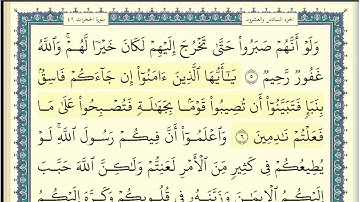 الجزء السادس والعشرون سورة الحجرات ٤٩
وَلَوۡ أَنَّهُمۡ صَبَرُواْ حَتَّىٰ تَخۡرُجَ إِلَيۡهِمۡ لَكَانَ خَيۡرٗا لَّهُمۡۚ وَٱللَّهُ
غَفُورٞ رَّحِيمٞ ٥ يَٰٓأَيُّهَا ٱلَّذِينَ ءَامَنُوٓاْ إِن جَآءَكُمۡ فَاسِقُۢ
بِنَبَإٖ فَتَبَيَّنُوٓاْ أَن تُصِيبُواْ قَوۡمَۢا بِجَهَٰلَةٖ فَتُصۡبِحُواْ عَلَىٰ مَا
فَعَلۡتُمۡ نَٰدِمِينَ ٦ وَٱعۡلَمُوٓاْ أَنَّ فِيكُمۡ رَسُولَ ٱللَّهِۚ لَوۡ
يُطِيعُكُمۡ فِي كَثِيرٖ مِّنَ ٱلۡأَمۡرِ لَعَنِتُّمۡ وَلَٰكِنَّ ٱللَّهَ حَبَّبَ
إِلَيۡكُمُ ٱلۡإِيمَٰنَ وَزَيَّنَهُۥ فِي قُلُوبِكُمۡ وَكَرَّهَ إِلَيۡكُمُ